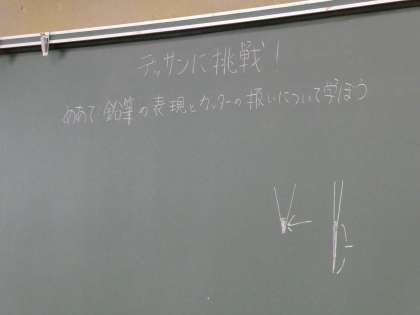 デッサンに挑戦!
めあて 鉛筆の表現とカッターの扱いについて学ぼう